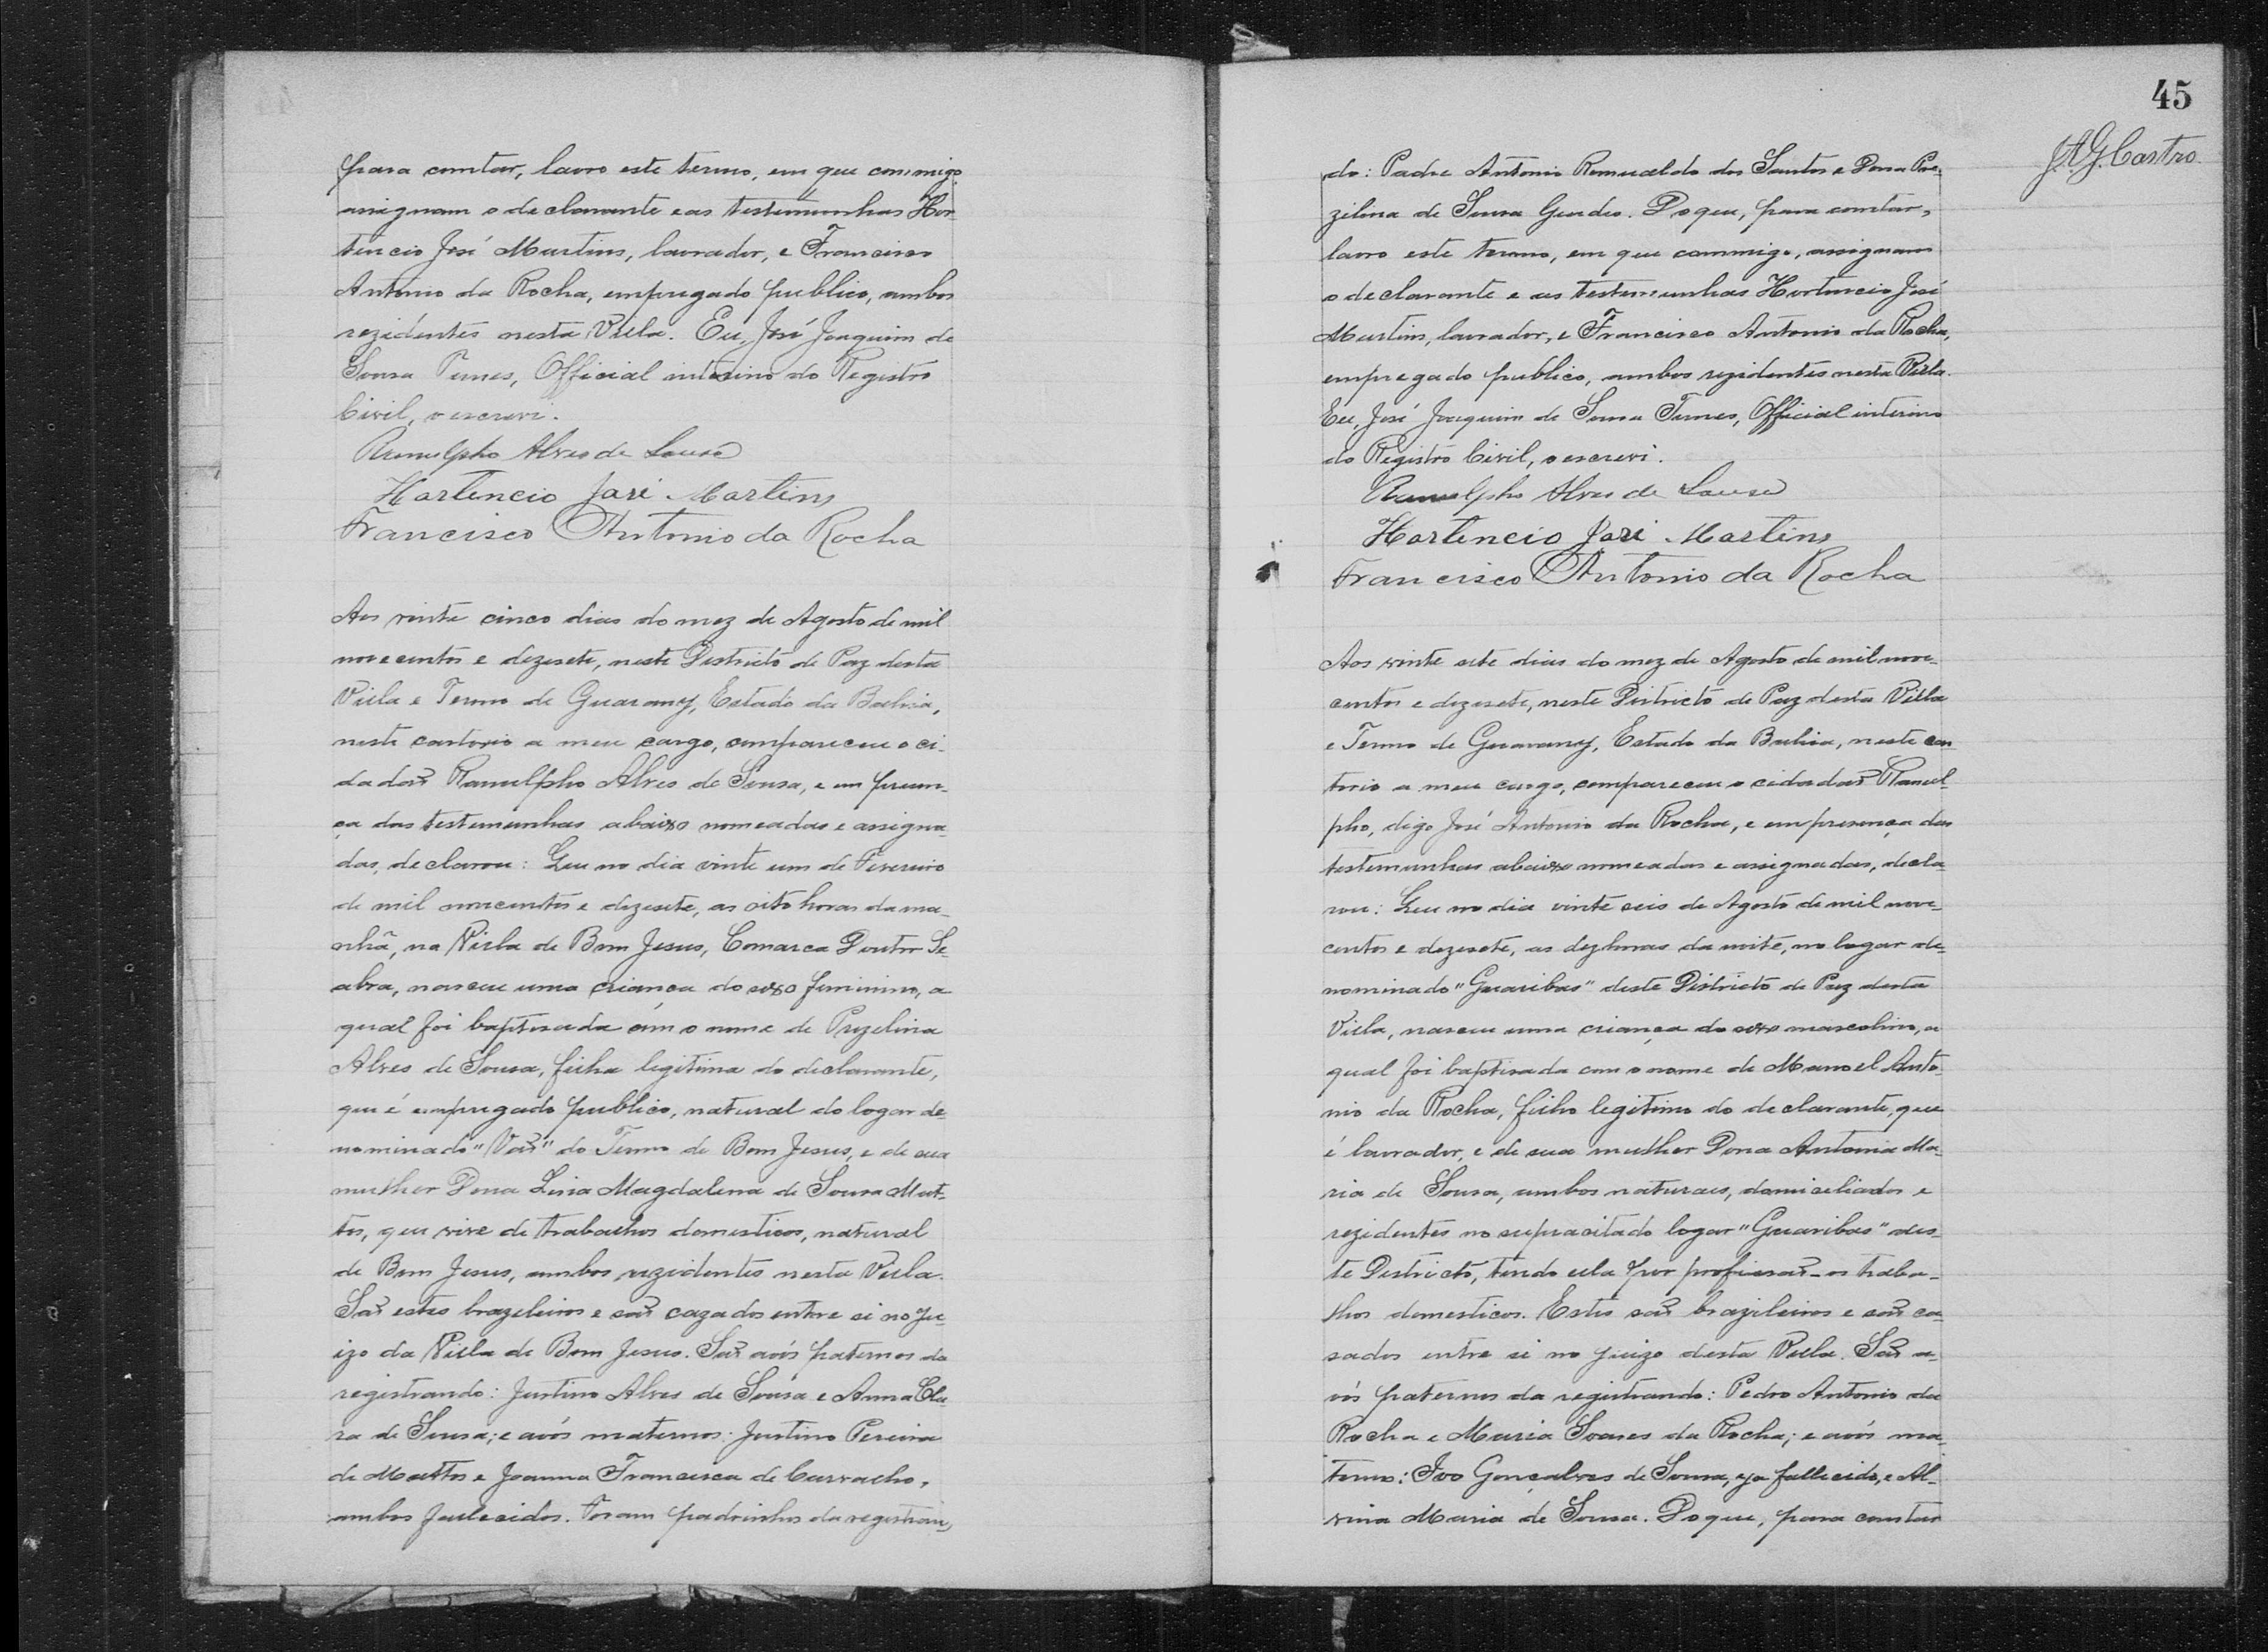 para constar, lavro este termo, em que commigo
assignam o declarante e as testemunhas Hor-
tencio José Martins, lavrador, e Francisco
Antonio da Rocha, empregado publico, ambos
rezidentes nesta Villa. Eu, José Joaquim de
Sousa Tunes, Official interino do Registro
Civil, o escrevi.
Ranulpho Alves de Sousa
Hortencio José Martins
Francisco Antonio da Rocha
Aos vinte cinco dias do mez de Agosto de mil
novecentos e dezesete, neste Districto de Paz desta
Villa e Termo de Guarany, Estado da Bahia,
neste cartorio a meu cargo, compareceu o ci-
dadaõ Ranulpho Alves de Sousa, e em presen-
ça das testemunhas abaixo nomeadas e assigna-
das, declarou: Que no dia vinte um de Fevereiro
de mil novecentos e dezesete, as oito horas da ma-
nhã, na Villa de Bom Jesus, Comarca Doutor Se-
abra, nasceu uma criança do sexo feminino, a
qual foi baptisada com o nome de Prezelina
Alves de Sousa, filha legitima do declarante,
que é empregado publico, natural do logar de-
nominado "Vaõ" do Termo de Bom Jesus, e de sua
mulher Dona Liria Magdalena de Sousa Mat-
tos, que vive de trabalhos domesticos, natural
de Bom Jesus, ambos rezidentes nesta Villa.
Saõ estes brazileiros e saõ cazados entre si no Ju-
izo da Villa de Bom Jesus. Saõ avós paternos da
registrando: Justino Alves de Sousa e Anna Cla-
ra de Sousa; e avós maternos: Justino Pereira
de Mattos e Joanna Francisca de Carvalho,
ambos fallecidos. Foram padrinhos da registran-
45
J.A.G. Castro.
do: Padre Antonio Romualdo dos Santos e Dona Pre-
zilina de Sousa Guedes. Do que, para constar,
lavro este termo, em que commigo, assignam
o declarante e as testemunhas Hortencio José
Martins, lavrador, e Francisco Antonio da Rocha,
empregado publico, ambos rezidentes nesta Villa.
Eu, José Joaquim de Sousa Tunes, Official interino
do Registro Civil, o escrevi.
Ranulpho Alves de Sousa
Hortencio José Martins
Francisco Antonio da Rocha
Aos vinte sete dias do mez de Agosto de mil nove-
centos e dezesete, neste Districto de Paz desta Villa
e Termo de Guarany, Estado da Bahia, neste car
torio a meu cargo, compareceu o cidadaõ Ranul-
pho, digo José Antonio da Rocha, e em presença das
testemunhas abaixo nomeadas e assignadas, decla-
rou: Que no dia vinte seis de Agosto de mil nove-
centos e dezesete, as dez horas da noite, no logar de-
nominado "Guaribas" deste Districto de Paz desta
Villa, nasceu uma criança do sexo masculino, a
qual foi baptisada com o nome de Manoel Anto-
nio da Rocha, filho legitimo do declarante, que
é lavrador, e de sua mulher Dona Antonia Ma-
ria de Sousa, ambos naturaes, domiciliados e
rezidentes no supracitado logar "Guaribas" des-
te Districto, tendo ella por profissaõ os traba-
lhos domesticos. Estes saõ brazileiros e saõ ca-
sados entre si no juizo desta Villa. Saõ a-
vós paternos da registrando: Pedro Antonio da
Rocha e Maria Soares da Rocha; e avós ma-
ternos: Ivo Gonçalves de Sousa, ja fallecido, e Al-
vina Maria de Sousa. Do que, para constar